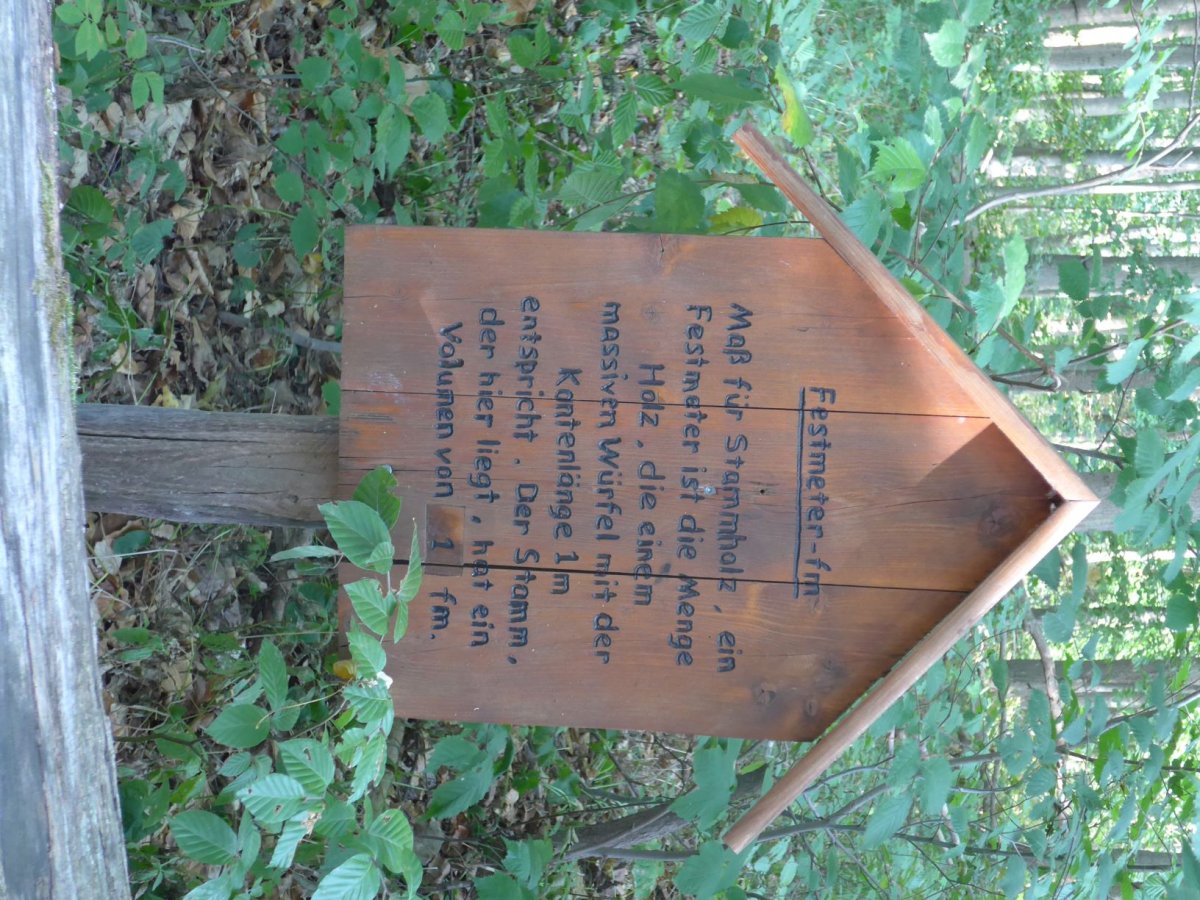 Festmeter-fm
Maß für Stammholz, ein
Festmeter ist die Menge
Holz, die einem
massiven Würfel mit der
Kantenlänge 1m
entspricht. Der Stamm,
der hier liegt, hat ein
Volumen von 1 fm.